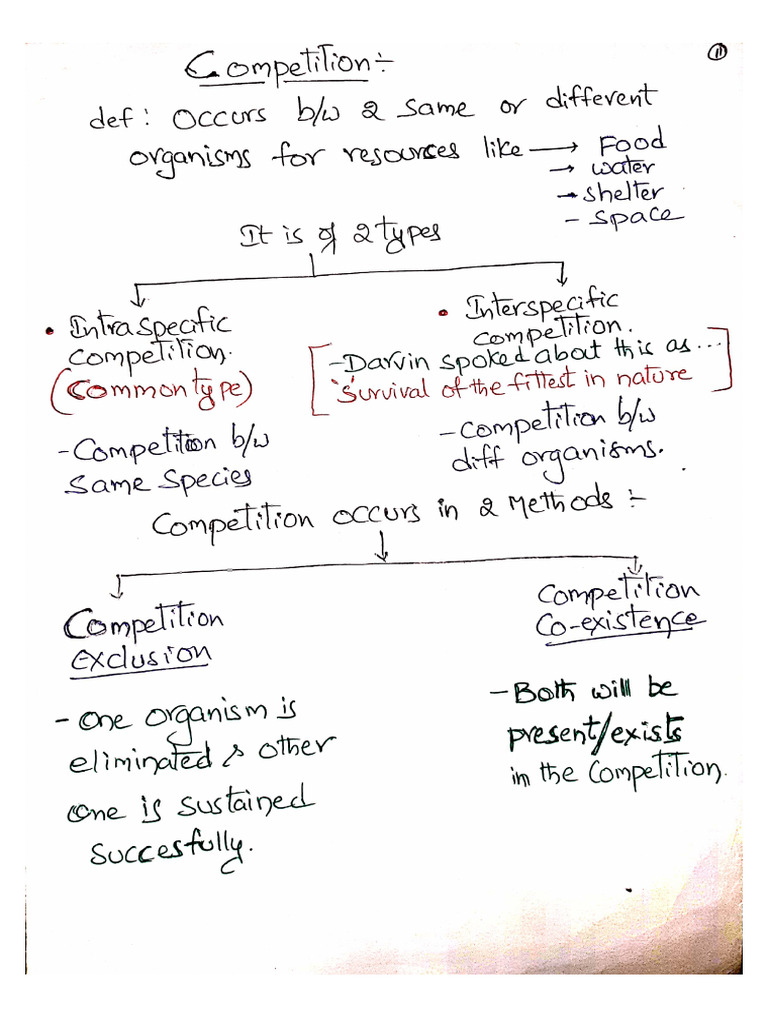 11
Competition :-
def : Occurs b/w 2 same or different
organisms for resources like → Food
→ water
→ shelter
- space
It is of 2 types
• Intraspecific
competition.
(Common type)
- Competition b/w
same species
• Interspecific
competition.
[- Darvin spoked about this as ...
'Survival of the fittest in nature]
- Competition b/w
diff organisms.
Competition occurs in 2 Methods :-
Competition
Exclusion
- One organism is
eliminated & other
one is sustained
succesfully.
Competition
Co-existence
- Both will be
present/exists
in the Competition.